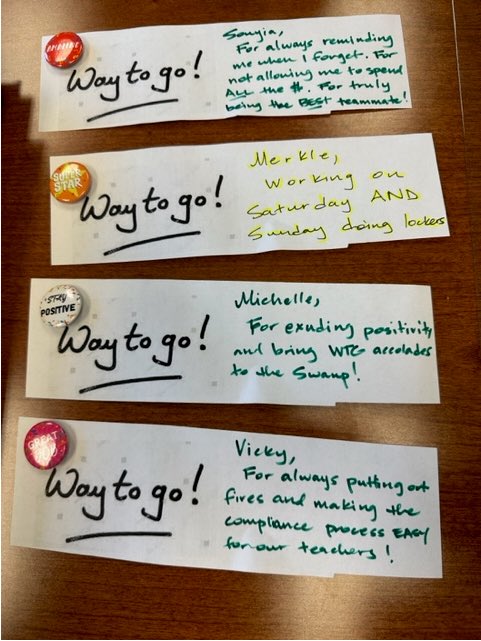 AWESOME
Way to go!
Sonyia,
For always reminding
me when I forget. For
not allowing me to spend
ALL the $. For truly
being the BEST teammate!
SUPER
STAR
Way to go!
Merkle,
Working on
Saturday AND
Sunday doing lockers
STAY
POSITIVE
Way to go!
Michelle,
For exuding positivity
and bring WTG accolades
to the Swamp!
GREAT
YOU
Way to go!
Vicky,
For always putting out
fires and making the
compliance process EASY
for our teachers!